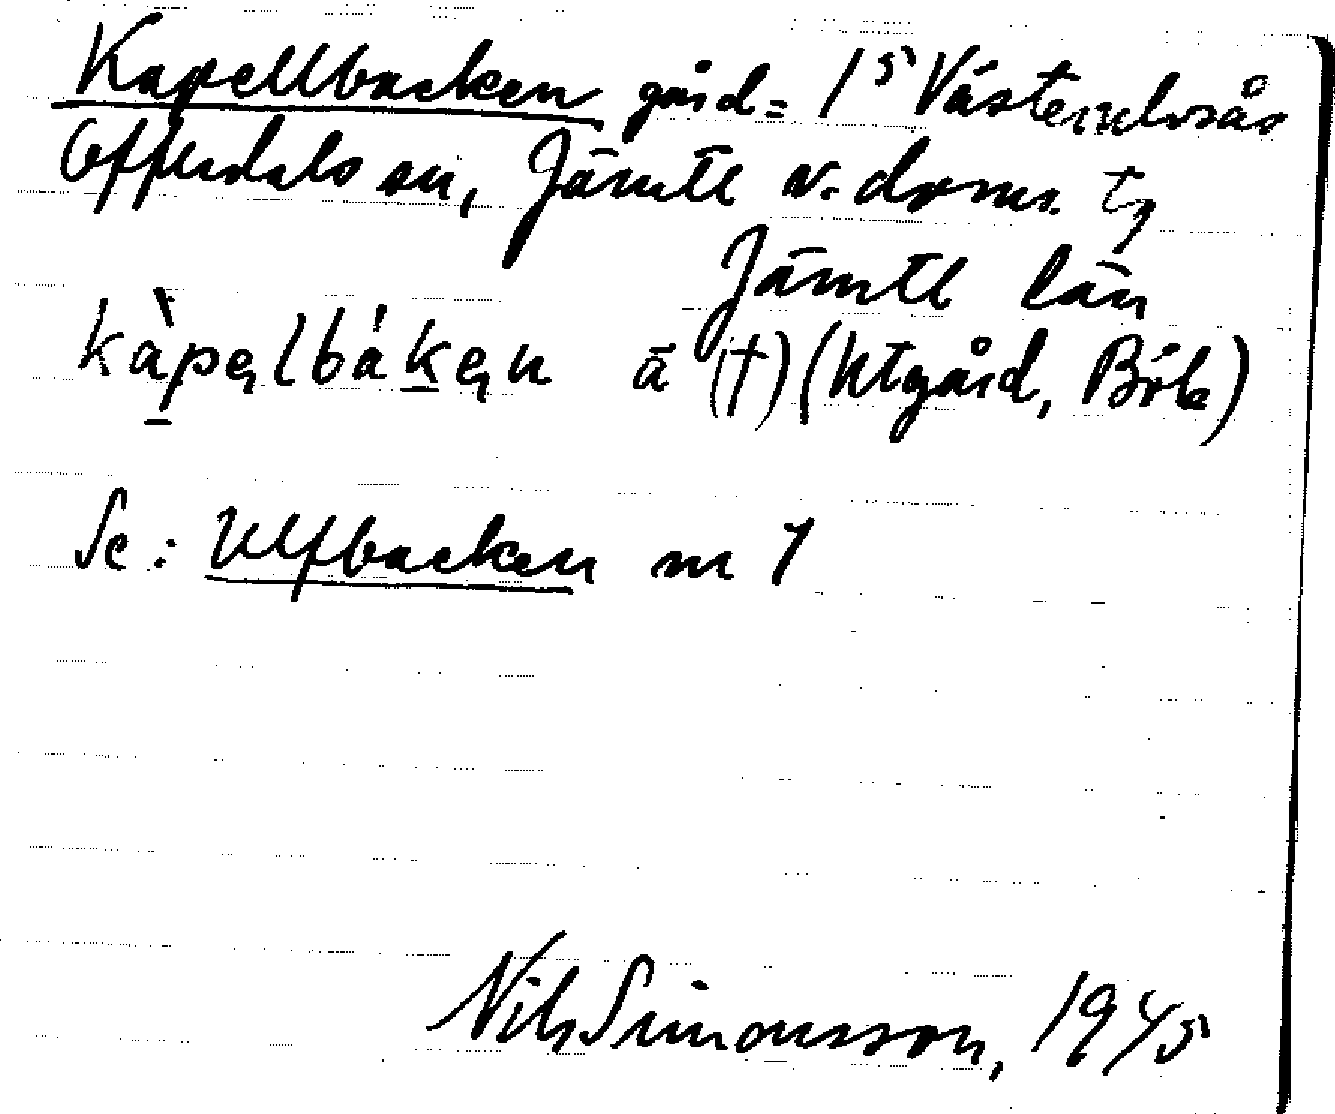 Kapellbacken gård = 1⁵ Västerulvsås
Offerdals sn, Jämtl v. doms. tg
Jämtl län
kàpelbáken ā (†) (Utgård, Böle)
Se: Ulfbacken nr 1
Nils Simonsson, 1945